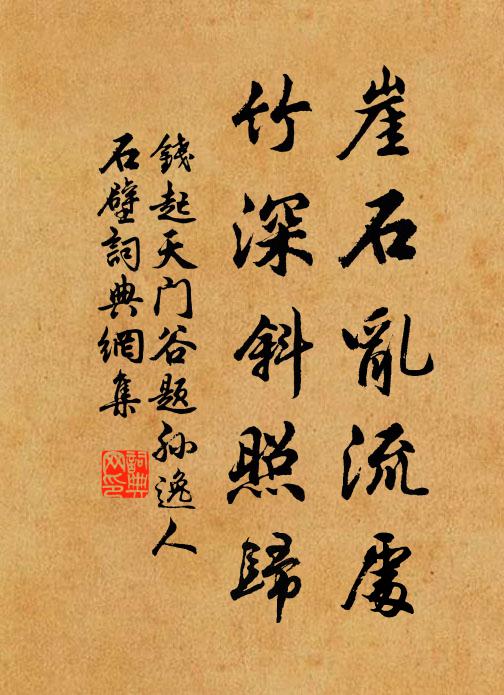 崖石亂流處
竹深斜照歸
錢起天门谷题孙逸人
石壁詞典網集
詞典
网印